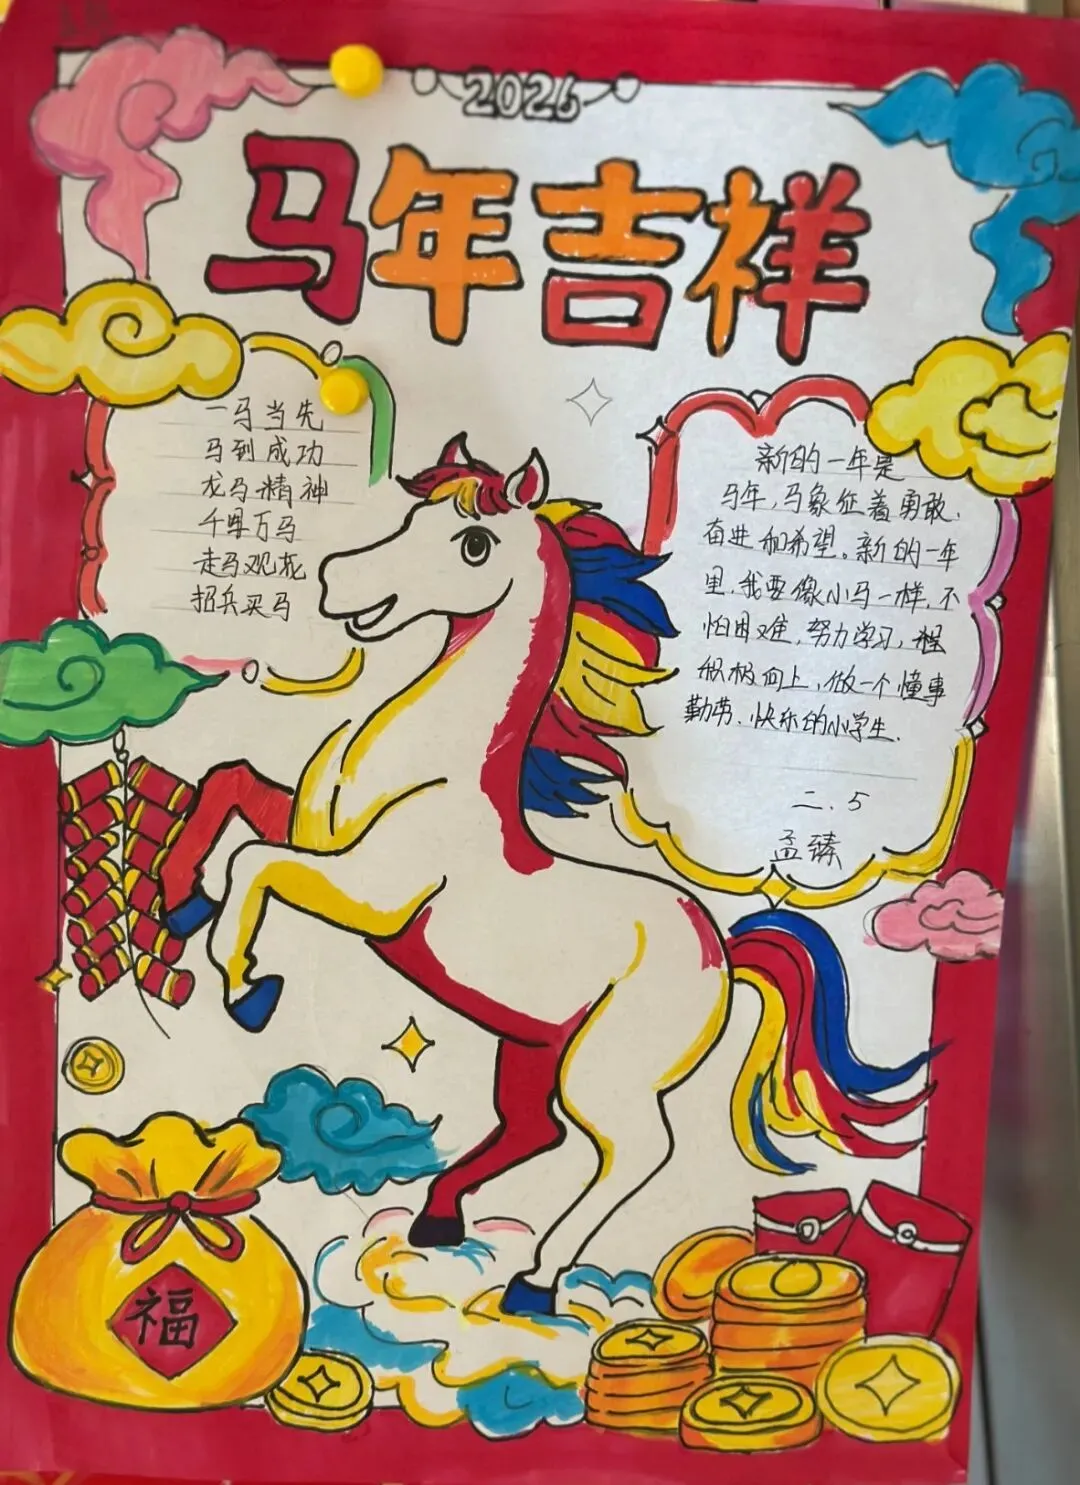 2026
马年吉祥
一马当先
马到成功
龙马精神
千军万马
走马观花
招兵买马
新的一年是
马年,马象征着勇敢、
奋进和希望。新的一年
里,我要像小马一样,不
怕困难,努力学习,
积极向上,做一个懂事
勤劳、快乐的小学生.
二.5
孟臻
福